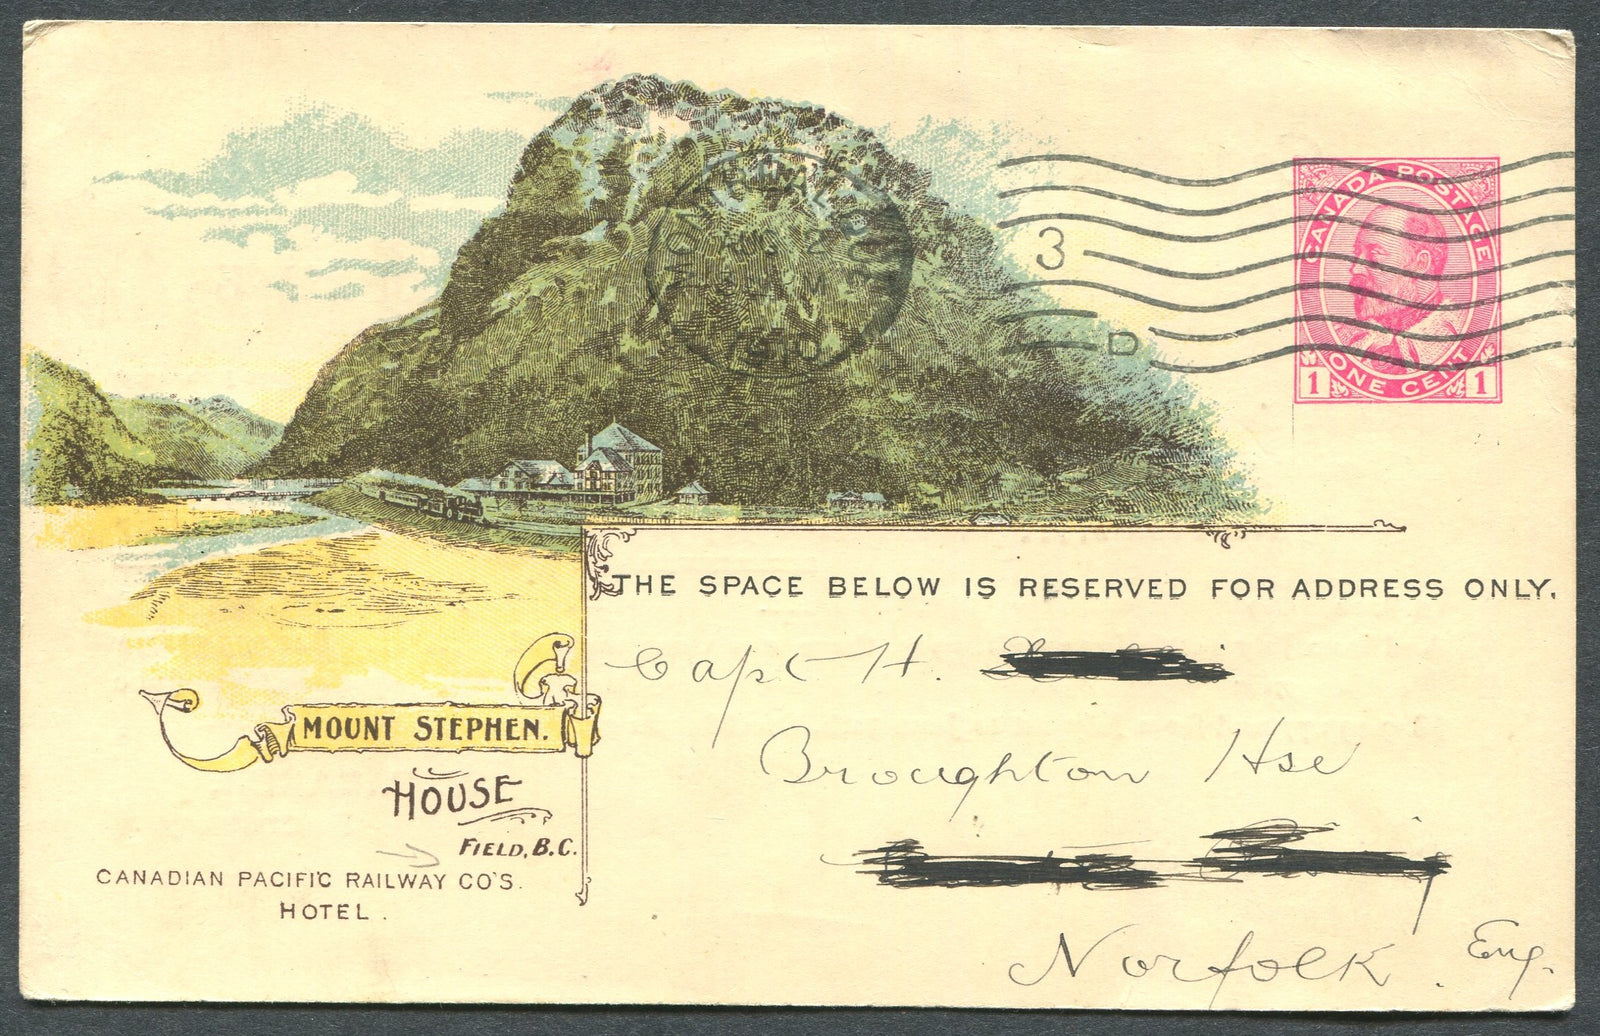 CANADA POSTAGE
ONE CENT
1 1
3
D
THE SPACE BELOW IS RESERVED FOR ADDRESS ONLY.
Capt H.
Broughton Hse
Norfolk. Eng.
MOUNT STEPHEN.
HOUSE
FIELD, B.C.
CANADIAN PACIFIC RAILWAY CO'S.
HOTEL.